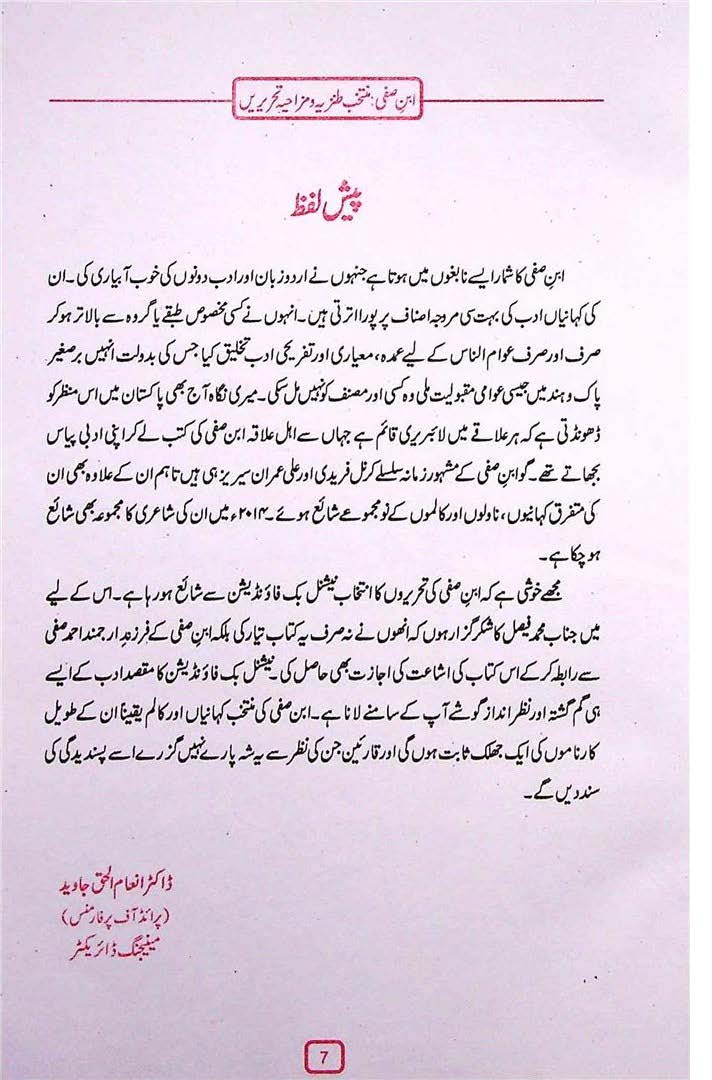 ابنِ صفی: منتخب طنزیہ و مزاحیہ تحریریں
پیش لفظ
ابنِ صفی کا شمار ایسے نابغوں میں ہوتا ہے جنہوں نے اردو زبان اور ادب دونوں کی خوب آبیاری کی۔ ان
کی کہانیاں ادب کی بہت سی مروجہ اصناف پر پورا اترتی ہیں۔ انہوں نے کسی مخصوص طبقے یا گروہ سے بالاتر ہو کر
صرف اور صرف عوام الناس کے لیے عمدہ، معیاری اور تفریحی ادب تخلیق کیا جس کی بدولت انہیں برصغیر
پاک و ہند میں جیسی عوامی مقبولیت ملی وہ کسی اور مصنف کو نہیں مل سکی۔ میری نگاہ آج بھی پاکستان میں اس منظر کو
ڈھونڈتی ہے کہ ہر علاقے میں لائبریری قائم ہے جہاں سے اہل علاقہ ابن صفی کی کتب لے کر اپنی ادبی پیاس
بجھاتے تھے۔ گو ابن صفی کے مشہور زمانہ سلسلے کرنل فریدی اور علی عمران سیریز ہی ہیں تاہم ان کے علاوہ بھی ان
کی متفرق کہانیوں، ناولوں اور کالموں کے نو مجموعے شائع ہوئے۔ ۲۰۱۴ء میں ان کی شاعری کا مجموعہ بھی شائع
ہو چکا ہے۔
مجھے خوشی ہے کہ ابنِ صفی کی تحریروں کا انتخاب نیشنل بک فاؤنڈیشن سے شائع ہو رہا ہے۔ اس کے لیے
میں جناب محمد فیصل کا شکر گزار ہوں کہ انھوں نے نہ صرف یہ کتاب تیار کی بلکہ ابنِ صفی کے فرزند ارجمند احمد صفی
سے رابطہ کر کے اس کتاب کی اشاعت کی اجازت بھی حاصل کی۔ نیشنل بک فاؤنڈیشن کا مقصد ادب کے ایسے
ہی گم گشتہ اور نظر انداز گوشے آپ کے سامنے لانا ہے۔ ابن صفی کی منتخب کہانیاں اور کالم یقیناً ان کے طویل
کارناموں کی ایک جھلک ثابت ہوں گی اور قارئین جن کی نظر سے یہ شہ پارے نہیں گزرے اسے پسندیدگی کی
سند دیں گے۔
ڈاکٹر انعام الحق جاوید
(پرائڈ آف پرفارمنس)
مینیجنگ ڈائریکٹر
7